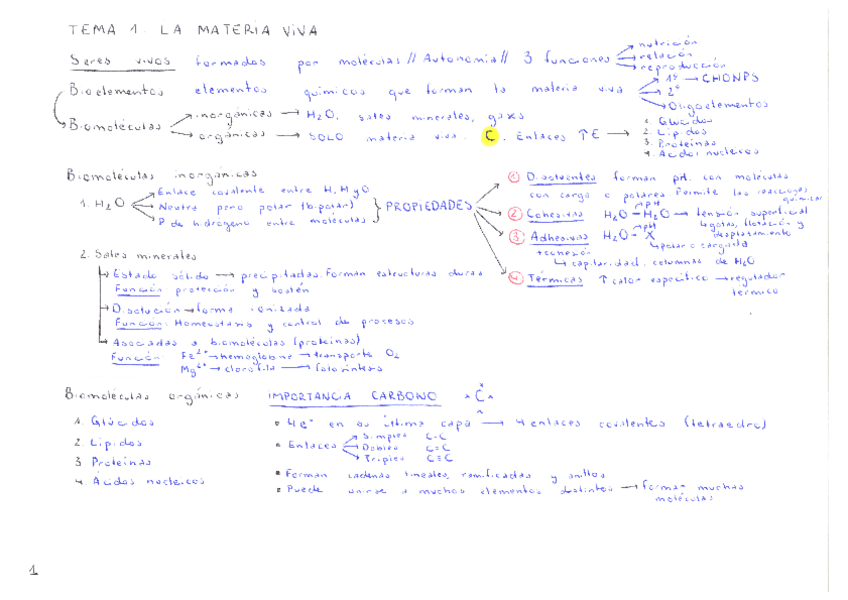 TEMA 1. LA MATERIA VIVA
Seres vivos formados por moléculas // Autonomía // 3 funciones → nutrición
→ relación
→ reproducción
Bioelementos elementos químicos que forman la materia viva → 1º → CHONPS
→ 2º
→ Oligoelementos
Biomoléculas → inorgánicas → H2O, sales minerales, gases
→ orgánicas → SOLO materia viva. C. Enlaces ↑E → 1. Glúcidos
2. Lípidos
3. Proteínas
4. Ácidos nucleicos
Biomoléculas inorgánicas
1. H2O → Enlace covalente entre H, H y O
→ Neutra pero polar (bipolar)
→ P de hidrógeno entre moléculas
} PROPIEDADES
① Disolventes forman pH con moléculas
con carga o polares. Permite las reacciones químicas
② Cohesivas H2O – H2O → tensión superficial
pH
↳ gotas, flotación y
desplazamiento
③ Adhesivas H2O – X
pH
↳ polar o cargada
+ cohesión
↳ capilaridad, columnas de H2O
④ Térmicas ↑ calor específico → regulador
térmico
2. Sales minerales
→ Estado sólido → precipitadas. Forman estructuras duras
Función: protección y sostén
→ Disolución → forma ionizada
Función: Homeostasis y control de procesos
→ Asociadas a biomoléculas (proteínas)
Función: Fe2+ → hemoglobina → transporte O2
Mg2+ → clorofila → fotosíntesis
Biomoléculas orgánicas IMPORTANCIA CARBONO C
1. Glúcidos
2. Lípidos
3. Proteínas
4. Ácidos nucleicos
• 4e- en su última capa → 4 enlaces covalentes (tetraedro)
• Enlaces → Simples C-C
→ Dobles C=C
→ Triples C≡C
• Forman cadenas lineales, ramificadas y anillos
• Puede unirse a muchos elementos distintos → forman muchas
moléculas
1